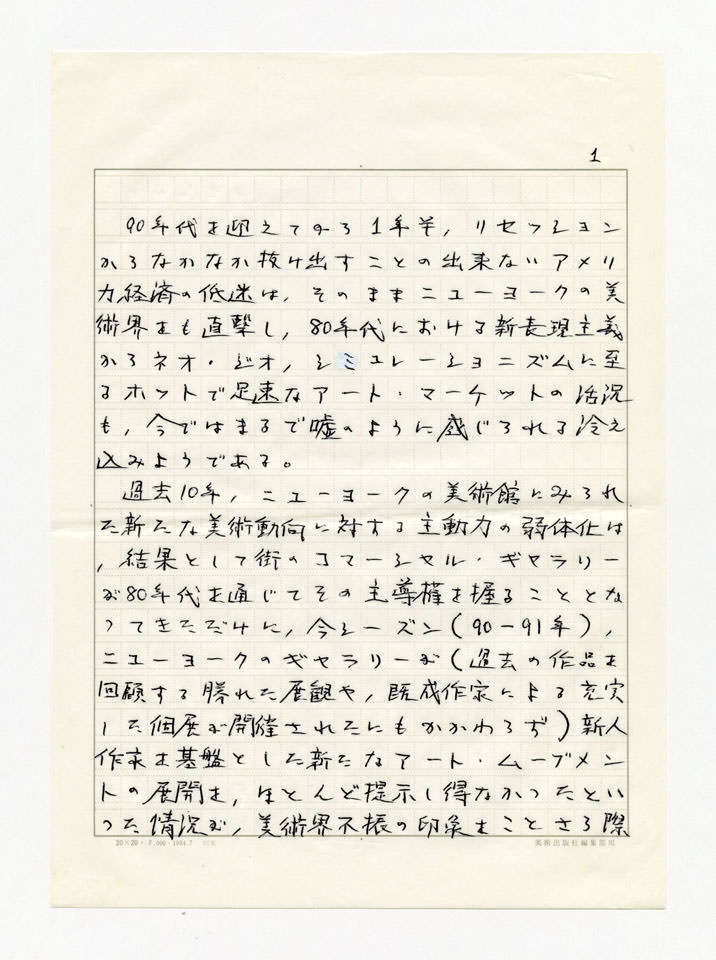 1
90年代を迎えてのち1年半，リセッション
からなかなか抜け出すことの出来ないアメリ
カ経済の低迷は，そのままニューヨークの美
術界をも直撃し，80年代における新表現主義
からネオ・ジオ，シミュレーショニズムに至
るホットで足速なアート・マーケットの活況
も，今ではまるで嘘のように感じられる冷え
込みようである。
過去10年，ニューヨークの美術館にみられ
た新たな美術動向に対する主動力の弱体化は
，結果として街のコマーシャル・ギャラリー
が80年代を通じてその主導権を握ることとな
ってきただけに，今シーズン(90－91年)，
ニューヨークのギャラリーが(過去の作品を
回顧する勝れた展観や，既成作家による充実
した個展が開催されたにもかかわらず)新人
作家を基盤とした新たなアート・ムーブメン
トの展開を，ほとんど提示し得なかったとい
った情況が，美術界不振の印象をことさら際
20×20・ 7,000・1984.7
美術出版社編集部用